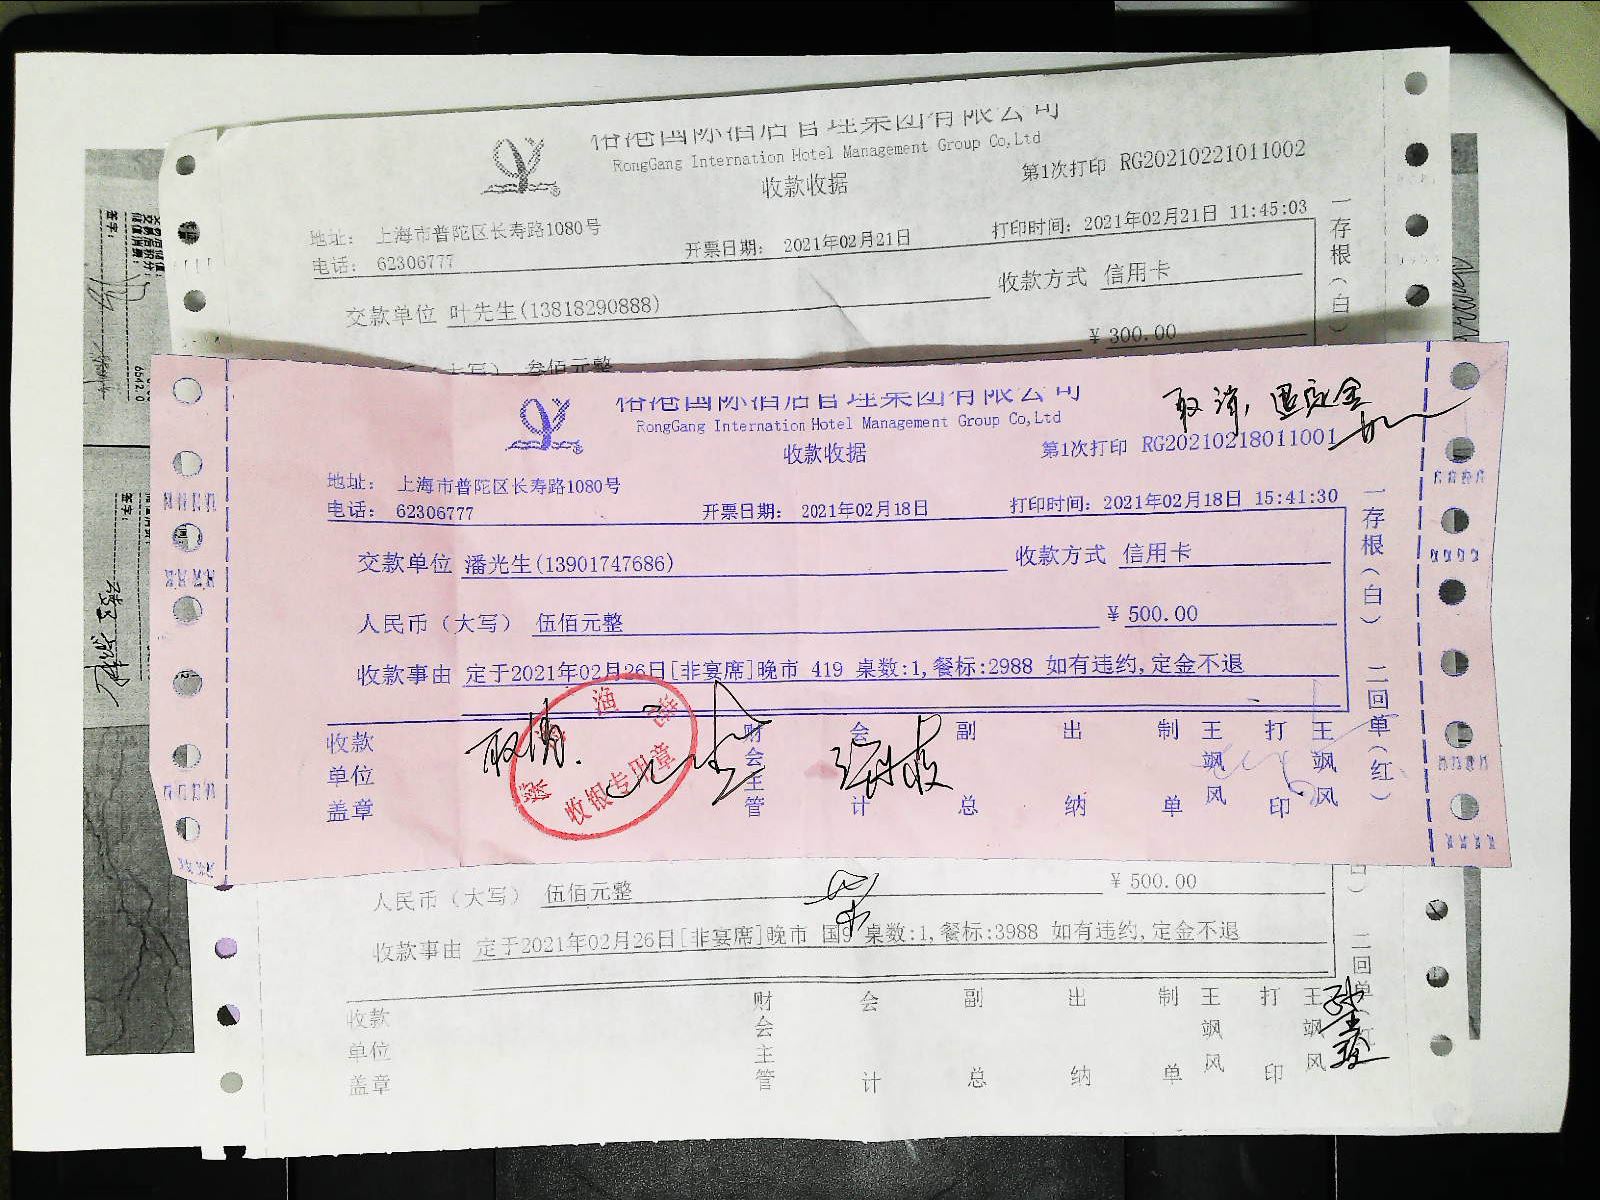 RongGang Internation Hotel Management Group Co,Ltd
收款收据
第1次打印 RG20210221011002
地址： 上海市普陀区长寿路1080号
电话： 62306777
开票日期： 2021年02月21日
打印时间：2021年02月21日 11:45:03
交款单位 叶先生(13818290888)
收款方式 信用卡
¥300.00
叁佰元整
一存根（白）
国际酒店管理集团有限公司
RongGang Internation Hotel Management Group Co,Ltd
取消，退定金
收款收据
第1次打印 RG20210218011001
地址： 上海市普陀区长寿路1080号
电话： 62306777
开票日期： 2021年02月18日
打印时间：2021年02月18日 15:41:30
交款单位 潘光生(13901747686)
收款方式 信用卡
人民币（大写） 伍佰元整
¥500.00
收款事由 定于2021年02月26日[非宴席]晚市 419 桌数:1,餐标:2988 如有违约,定金不退
一存根（白） 二回单（红）
收款单位盖章
财会主管
会计
副总
出纳
制单
王飒风
打印
王飒风
收银专用章
人民币（大写） 伍佰元整
¥500.00
收款事由 定于2021年02月26日[非宴席]晚市 国9 桌数:1,餐标:3988 如有违约,定金不退
收款单位盖章
财会主管
会计
副总
出纳
制单
王飒风
打印
王飒风